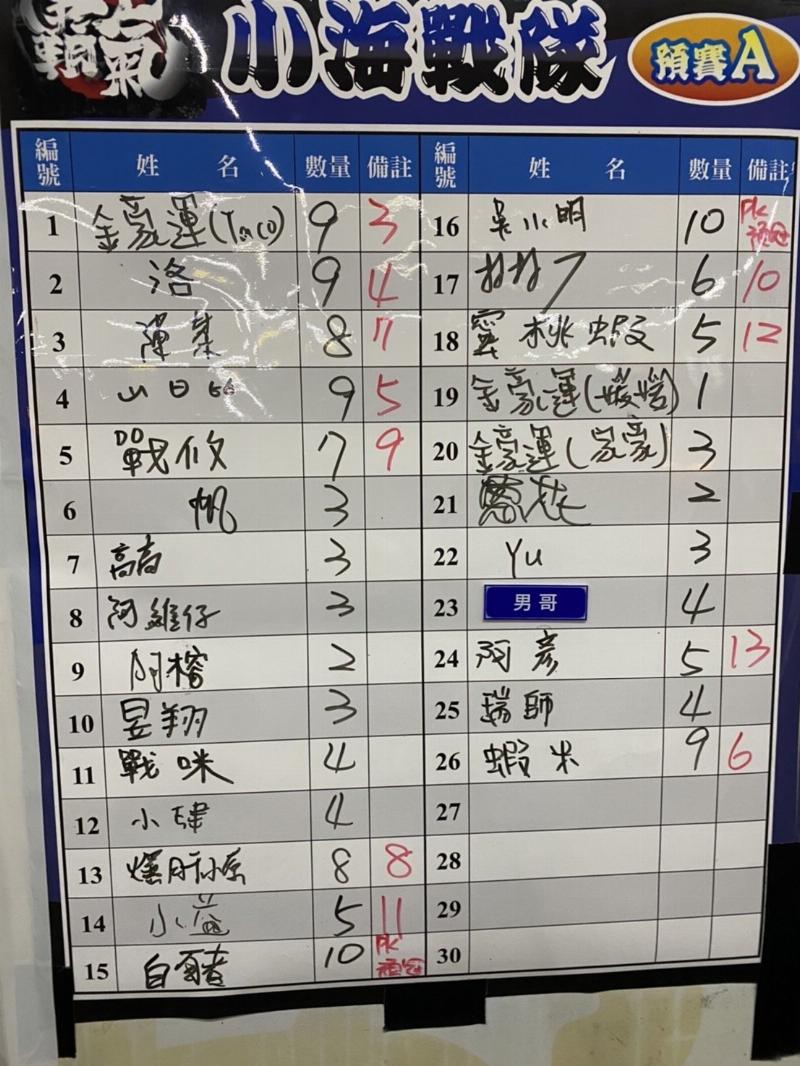 霸氣
小海戰隊
預賽A
編號 姓名 數量 備註
1 金豪運(Taco) 9 3
2 洛 9 4
3 陳葉 8 7
4 山日 9 5
5 戰攸 7 9
6 帆 3
7 高高 3
8 阿維仔 3
9 阿榕 2
10 昱翔 3
11 戰咪 4
12 小肆 4
13 爆肝小原 8 8
14 小益 5 11
15 白賊者 10 PK 預冠
編號 姓名 數量 備註
16 吳小明 10 PK 預冠
17 6 10
18 蜜桃蝦 5 12
19 金豪運( ) 1
20 金豪運(豪豪) 3
21 2
22 Yu 3
23 男哥 4
24 阿彥 5 13
25 瑞師 4
26 蝦米 9 6
27
28
29
30